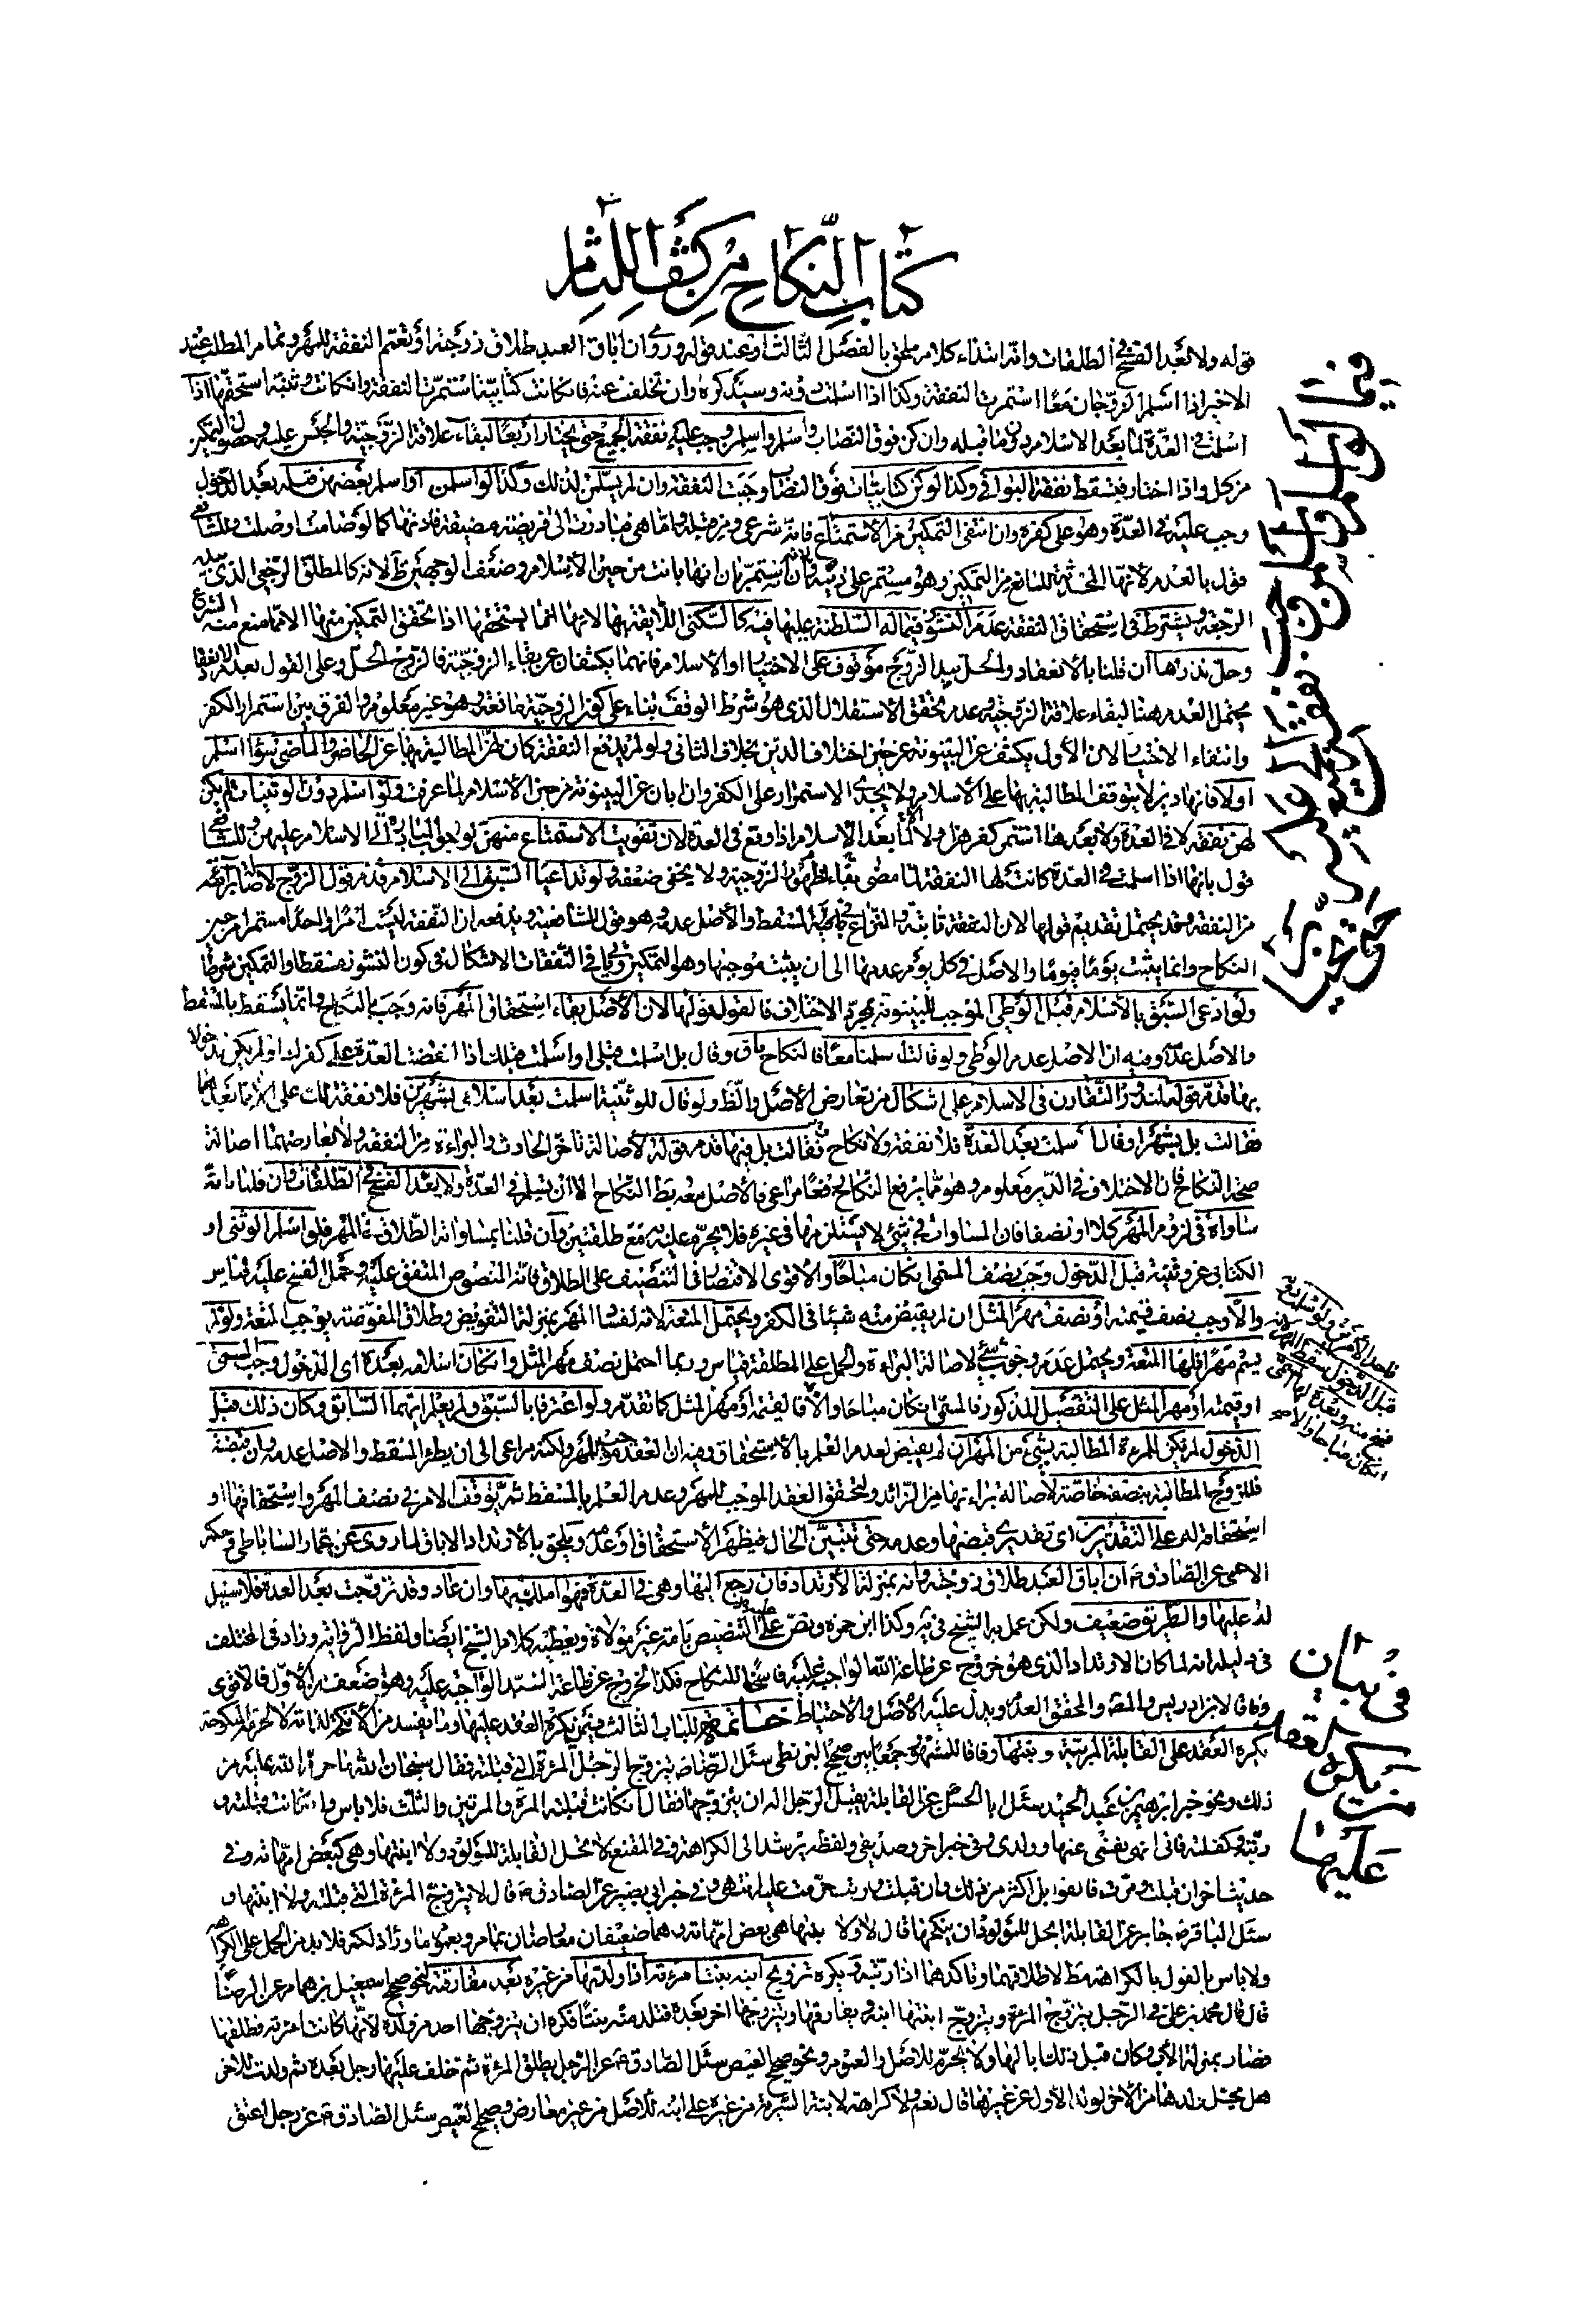 كتاب النكاح من كشف اللثام
قوله ولا يعد الفسخ في الطلقات وانه ابتداء كلام ملحق بالفصل الثالث او عند قوله وروي ان اباق العبد طلاق زوجته او تعتم النفقة للمهر وتمام المطلب عند
الاخير اذا اسلم الزوجان معا استمرت النفقة وكذا اذا اسلمت دونه وسيذكره وان تخلفت عنه فان كانت كتابية استمرت النفقة وان كانت وثنية استحقتها اذا
اسلمت في العدة لما بعد الاسلام دون ما قبله وان كن فوق النصاب واسلم واسلمن وجب عليه نفقة الجميع حتى يختار اربعا لبقاء علاقة الزوجية والحبس عليه وحصول التمكين
من كل واذا اختار فتسقط نفقة البواقي وكذا لو كن كتابيات فوق النصاب وجبت النفقة وان لم يسلمن لذلك وكذا لو اسلمن او اسلم بعضهن قبله بعد الدخول
وجب عليه في العدة وهو على كفره وان انتفى التمكين من الاستمتاع فانه شرعي ومن قبله وانما هي مبادرت الى فريضته مضيقة فاذنها كما لو صامت او صلت وللشافعي
قول بالعدم لانها المحدثة للمانع من التمكين وهو مستمر على دينه وان استمر بان انها بانت من حين الاسلام وضعف الوجهين ظ لانه كالمطلق الرجعي الذي بيده
الرجعة ويشترط في استحقاق النفقة عدم النشوز فيما له السلطنة عليها فيه كالسكنى اللائقة بها لانها انما يستحقها اذا تحقق التمكين منها الا ما منع منه الشرع
وحل نذرها ان قلنا بالانعقاد والحل بيد الزوج موقوف على الاختيار او الاسلام فانهما يكشفان عن بقاء الزوجية فالزوج الحل وعلى القول بعدم الانعقاد
يحتمل العدم هنا لبقاء علاقة الزوجية وعدم تحقق الاستقلال الذي هو شرط الوقف بناء على كون الزوجية مانعة وهو غير معلوم والفرق بين استمرار الكفر
وانتفاء الاختيار لان الاول يكشف عن البينونة من حين اختلاف الدين بخلاف الثاني ولو لم يدفع النفقة كان لهن المطالبة بها عن الحاضر والماضي سواء اسلم
اولا فانها دين لا يتوقف المطالبة بها على الاسلام ولا يجدي الاستمرار على الكفر وان بان عن البينونة من حين الاسلام لما عرفت ولو اسلم دون الوثنيات لم يكن
لهن نفقة لا في العدة ولا بعدها استمر كفرهن او لا الا لما بعد الاسلام اذا وقع في العدة لان تفويت الاستمتاع منهن لوجوب المبادرة الى الاسلام عليهن وللشافعي
قول بانها اذا اسلمت في العدة كانت لها النفقة لما مضى بقاء لظهور الزوجية ولا يخفى ضعفه ولو تداعيا السبق الى الاسلام قدم قول الزوج لاصالة البرائة
من النفقة وقد يحتمل تقديم قولها لان النفقة ثابتة والنزاع في المسقط والاصل عدمه وهو قول للشافعية ويدفعه ان النفقة ليست امرا واحدا مستمرا من حين
النكاح وانما يثبت يوما فيوما والاصل في كل يوم عدمها الى ان يثبت موجبها وهو التمكين ويأتي في النفقات الاشكال في كون النشوز مسقطا والتمكين شرطا
ولو ادعى السبق بالاسلام قبل الوطي الموجب للبينونة بمجرد الاختلاف فالقول قولها لان الاصل بقاء استحقاق المهر فانه وجب بالنكاح وانما يسقط بالمسقط
والاصل عدمه وفيه ان الاصل عدم الوطي ولو قالت اسلمنا معا فالنكاح باق وقال بل اسلمت قبلي او اسلمت قبلك اذا انقضت العدة على كفرك او لم يكن مدخولا
بها قدم قوله لندور التقارن في الاسلام على اشكال من تعارض الاصل والظ ولو قال للوثنية اسلمت بعد اسلامي بشهرين فلا نفقة لك على الا لما بعدهما
فقالت بل بشهر او قال اسلمت بعد العدة فلا نفقة ولا نكاح فقالت بل فيها قدم قوله لاصالة تاخر الحادث والبراءة من النفقة ولا يعارضهما اصالة
صحة النكاح فان الاختلاف في الدين معلوم وهو مما يرفع النكاح رفعا مراعى فالاصل معه بط النكاح الا ان يسلم في العدة ولا يعد الفسخ في الطلقات وان قلنا بانه
ساواه في لزوم المهر كلا او نصفا فان المساواة في شئ لا يستلزمها في غيره فلا يحرم عليه به مع طلقتين وان قلنا بمساواته الطلاق في المهر فلو اسلم الوثني او
الكتابي عن وثنية قبل الدخول وجب نصف المسمى ان كان مباحا والاقوى الاقتصار في التنصيف على الطلاق فانه المنصوص المتفق عليه وحمل الفسخ عليه قياس
والا وجب نصف قيمته او نصف مهر المثل ان لم يقبض منه شيئا في الكفر ويحتمل المتعة لانه لفساد المهر بمنزلة التفويض وطلاق المفوضة يوجب المتعة ولو لم
يسم مهرا فلها المتعة ويحتمل عدم وجوب شئ لاصالة البراءة والحمل على المطلقة قياس وربما احتمل نصف مهر المثل وان كان اسلامه بعده اي الدخول وجب المسمى
او قيمته او مهر المثل على التفصيل المذكور فالمسمى ان كان مباحا والا فالقيمة او مهر المثل كما تقدم ولو اعترفا بالسبق ولم يعلم ايهما السابق وكان ذلك قبل
الدخول لم يكن للمرءة المطالبة بشئ من المهر ان لم يقبض لعدم العلم بالاستحقاق وفيه ان العقد موجب للمهر ولكنه مراعى الى ان يطرء المسقط والاصل عدمه وان قبضته
فللزوج المطالبة بنصفه خاصة لاصالة براءتها من الزائد ولتحقق العقد الموجب للمهر وعدم العلم بالمسقط ثم يتوقف الامر في نصف المهر واستحقاقها او
استحقاقه له على التقديرين اي تقديري قبضها وعدمه حتى تتبين الحال فيظهر الاستحقاق او عدمه ويلحق بالارتداد الاباق لما روي عن عمار الساباطي وحكم
الاحمي عن الصادق ع ان اباق العبد طلاق زوجته وانه بمنزلة الارتداد فان رجع اليها وهي في العدة فهو املك بها وان عاد وقد تزوجت بعد العدة فلا سبيل
له عليها والطريق ضعيف ولكن عمل به الشيخ في يه وكذا ابن حمزة ونص على التنصيص بامة غير مولاه ويعطيه كلام الشيخ ايضا ولفظ الرواية وزاد في المختلف
في دليله انه لما كان الارتداد الذي هو خروج عن طاعة الله الواجبة عليه فاسخا للنكاح فكذا الخروج عن طاعة السيد الواجبة عليه وهو ضعف من الاول فالاقوى
وفاقا لابن ادريس والمص والمحقق العدم ويدل عليه الاصل والاحتياط خاتمة للباب الثالث فيمن يكره العقد عليها وما يفسد من الانكحة لذاته لا لحرمة المنكوحة
يكره العقد على القابلة المربية وبنتها وفاقا للمشهور جمعا بين صحيح البزنطي سئل الرضا ع يتزوج الرجل المرءة التي قبلته فقال سبحان الله ما حرم الله عليه من
ذلك ونحو خبر ابرهيم بن عبد الحميد سئل ابا الحسن ع عن القابلة يقبل الرجل اله ان يتزوجها فقال ان كانت قبلته المرة والمرتين والثلث فلا باس وان كانت قبلته و
ربته وكفلته فاني انهى نفسي عنها وولدي وفي خبر اخر وصديقي ولفظه يرشد الى الكراهة وفي المقنع لا تحل القابلة للمولود ولا ابنتها وهي كبعض امهاته وفي
حديث اخر ان قبلت ومرت فالقوابل اكثر من ذلك وان قبلت وربت حرمت عليه انتهى وفي خبر ابي بصير عن الصادق ع قال لا يتزوج المرءة التي قبلته ولا ابنتها و
سئل الباقر ع جابر عن القابلة ايحل للمولود ان ينكحها قال لا ولا بنتها هي بعض امهاته وهما ضعيفان معارضان بما مر وبعموم ما وراء ذلكم فلا بد من الحمل على الكراهة
ولا باس بالقول بالكراهة مط لاطلاقهما وتاكدهما اذا ربته ويكره تزويج ابنه بنت امرءته اذا ولدتها من غيره بعد مفارقته لنحو صحيح اسمعيل بن همام عن الرضا ع
قال قال محمد بن علي في الرجل يتزوج المرءة ويتزوج ابنتها ابنه ويفارقها ويتزوجها اخر بعده فتلد منه بنتا فكره ان يتزوجها احد من ولده لانها كانت امرءته فطلقها
فصار بمنزلة الاب وكان قبل ذلك ابا لها ولا يحرم للاصل والعموم ونحو صحيح العيص سئل الصادق ع عن الرجل يطلق المرءة ثم تخلف عليها رجل بعده ثم ولدت للاخر
هل يحل ولدها من الاخر لولد الاول من غيرها قال نعم ولا كراهة لابنة السرية من غيره على ابنه للاصل من غير معارض وصحيح العيص سئل الصادق ع عن رجل اعتق
في بيان
من يكره
العقد
عليها